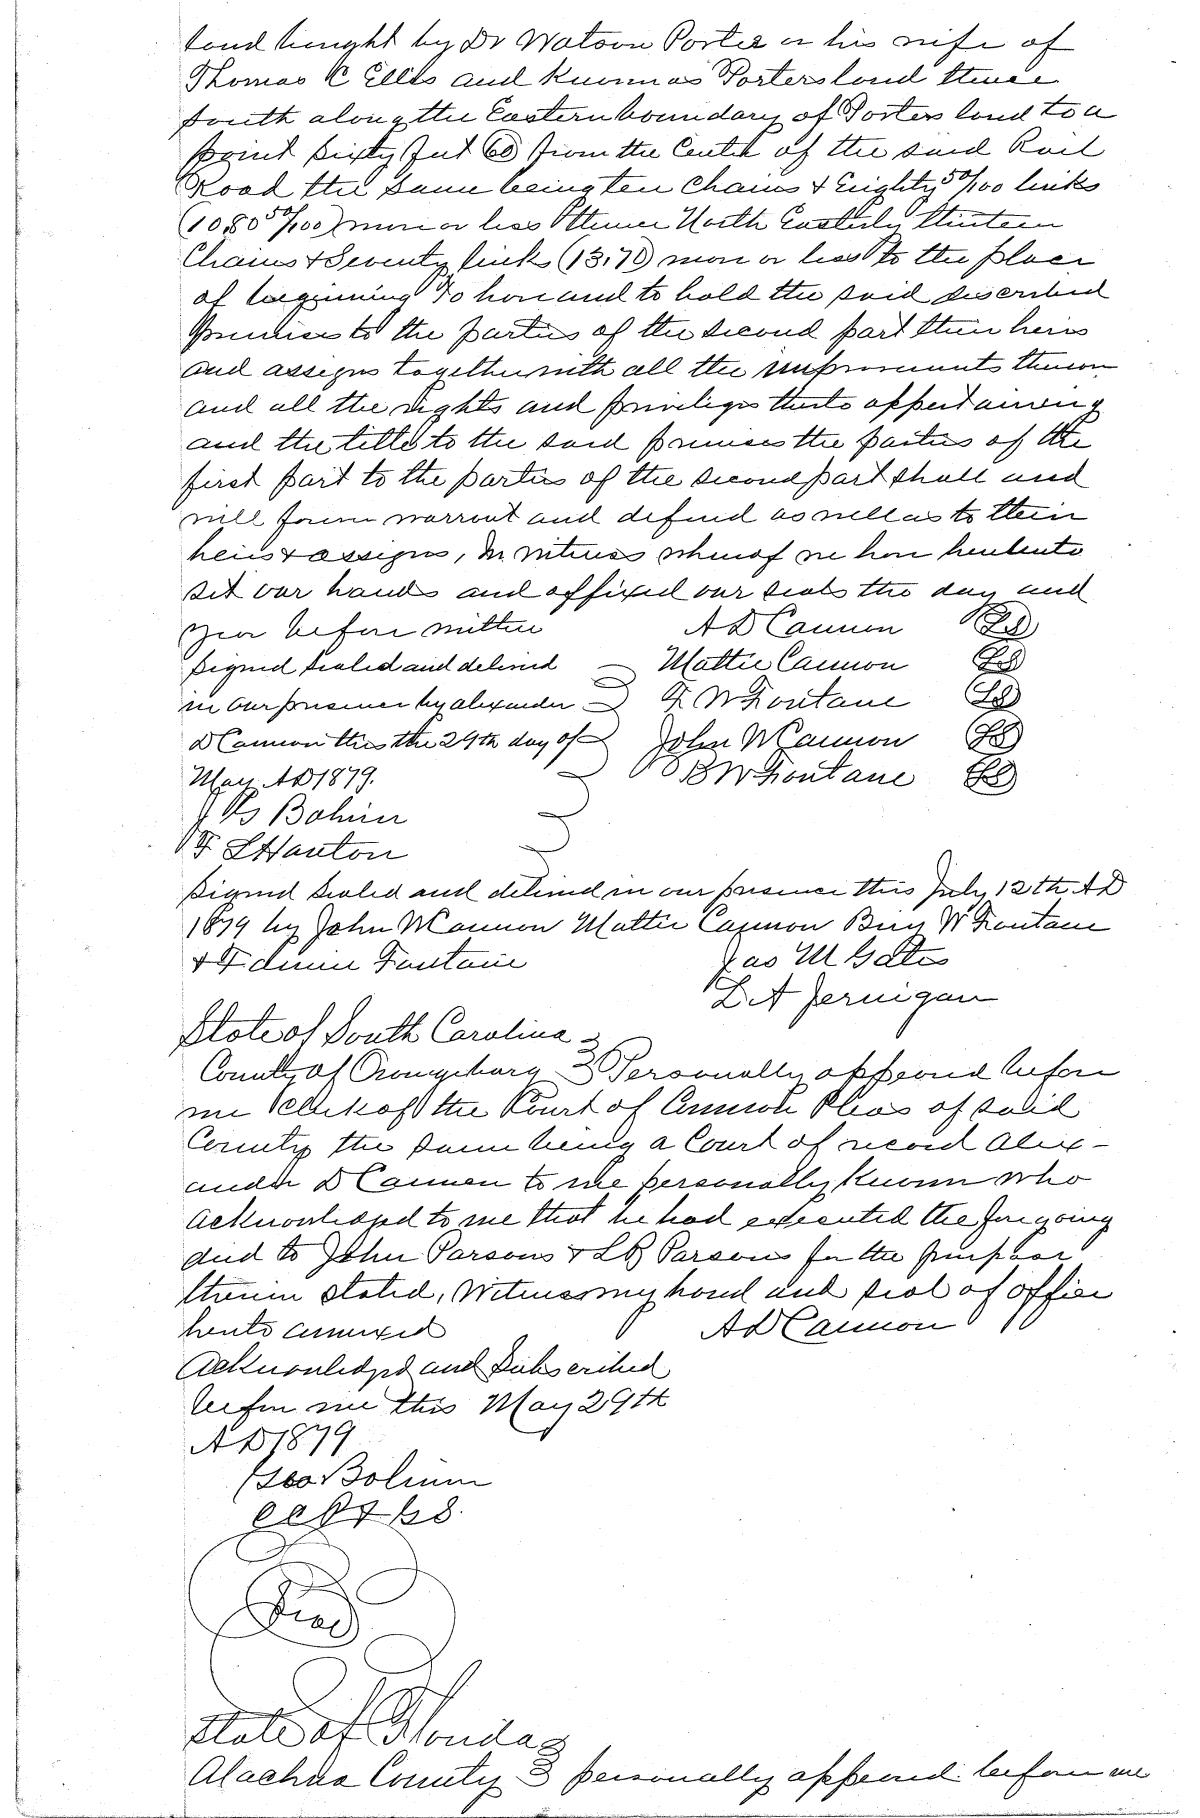 land bought by Dr Watson Porter or his wife of
Thomas C Ellis and known as Porters land thence
south along the Eastern boundary of Porters land to a
point sixty feet (60) from the Center of the said Rail
Road the same being ten chains & Eighty 50/100 links
(10,80 50/100) more or less thence North Easterly thirteen
Chains & Seventy links (13,70) more or less to the place
of beginning To have and to hold the said described
premises to the parties of the second part their heirs
and assigns together with all the improvements thereon
and all the rights and privileges thereto appertaining
and the title to the said premises the parties of the
first part to the parties of the second part shall and
will forever warrant and defend as well as to their
heirs & assigns, In witness whereof we have hereunto
set our hands and affixed our seals the day and
year before written A D Cannon LS
Signed sealed and delivered Mattie Cannon LS
in our presence by alexander F W Fontane LS
D Cannon this the 29th day of John W Cannon LS
May AD 1879. B W Fontane LS
Bolivar
F S Hanton
Signed sealed and delivered in our presence this July 12th AD
1879 by John W Cannon Mattie Cannon Benj W Fontane
& Fontane Jas M Gates
L A Jernigan
State of South Carolina
County of Orangeburg Personally appeared before
me Clerk of the Court of Common Pleas of said
County the same being a Court of record Alex-
ander D Cannon to me personally known who
acknowledged to me that he had executed the foregoing
deed to John Parsons & L B Parsons for the purpose
therein stated, Witness my hand and seal of office
hereto annexed A D Cannon
Acknowledged and Subscribed
before me this May 29th
AD 1879
Geo Boliver
CCP
Seal
State of Florida
Alachua County personally appeared before me